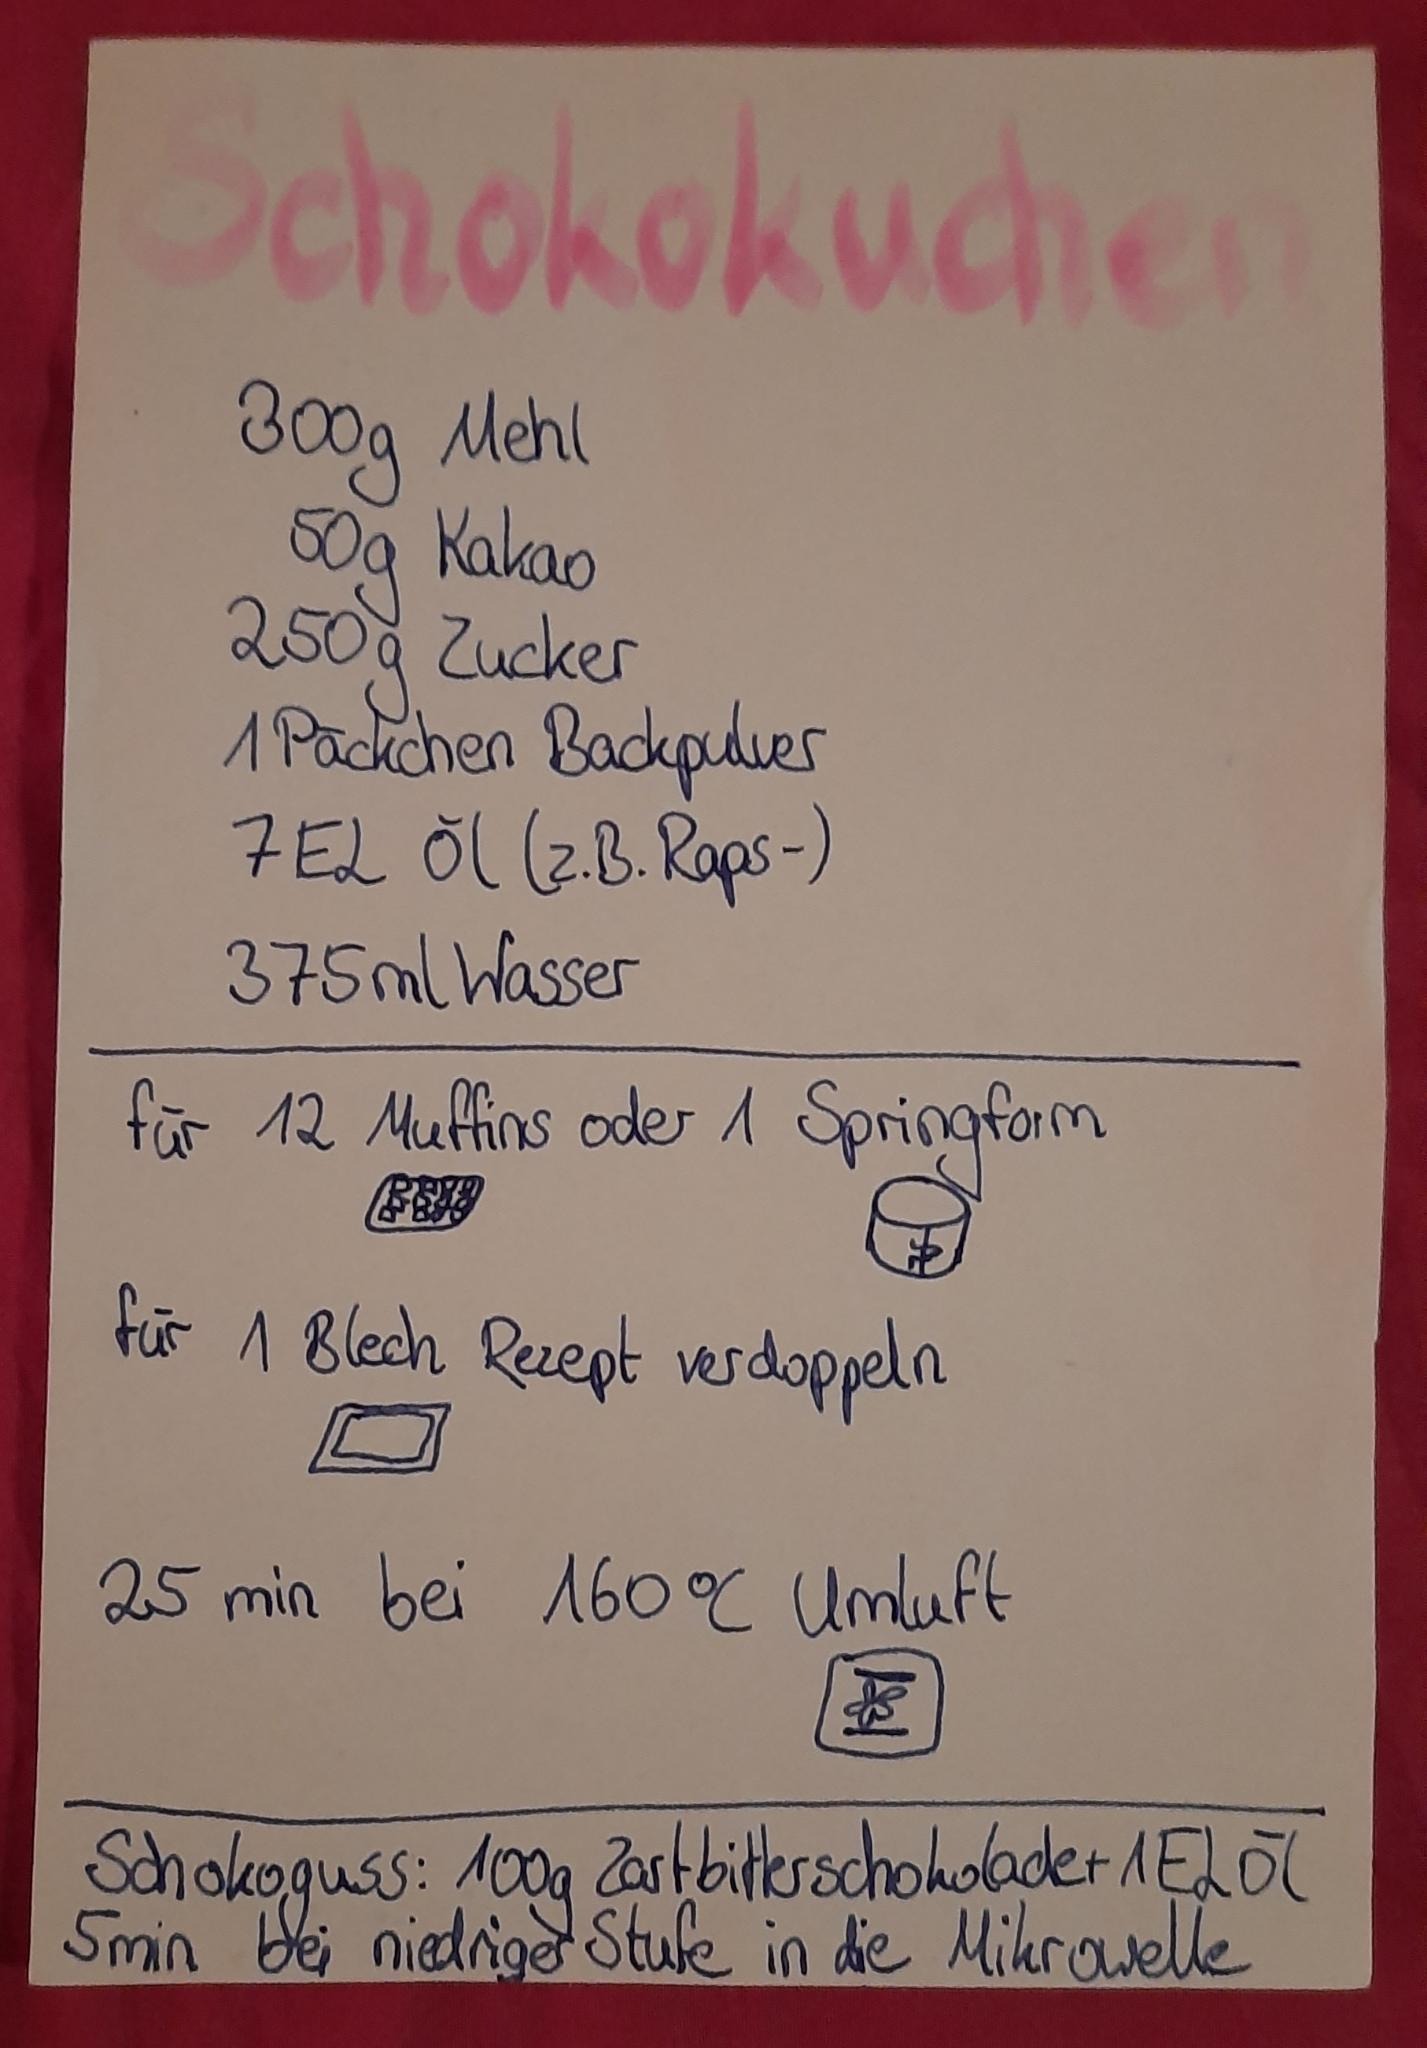 Schokokuchen
300g Mehl
50g Kakao
250g Zucker
1 Päckchen Backpulver
7 EL Öl (z.B. Raps-)
375ml Wasser
für 12 Muffins oder 1 Springform
für 1 Blech Rezept verdoppeln
25 min bei 160°C Umluft
Schokoguss: 100g Zartbitterschokolade + 1 EL Öl
5min bei niedriger Stufe in die Mikrowelle